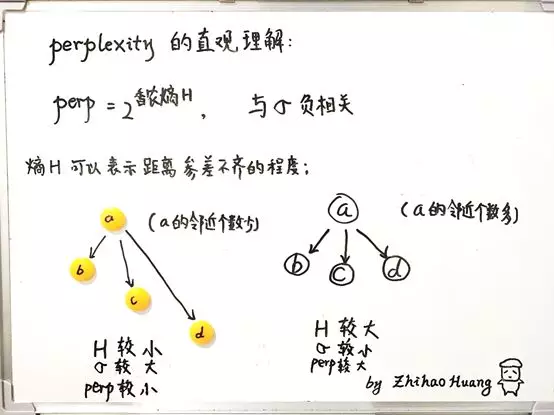 perplexity 的直观理解:
perp = 2^香农熵H, 与σ负相关
熵H可以表示距离参差不齐的程度;
a (a的邻近个数少) a (a的邻近个数多)
b c d b c d
H 较小 H 较大
σ 较大 σ 较小
perp 较小 perp 较大
by Zhihao Huang